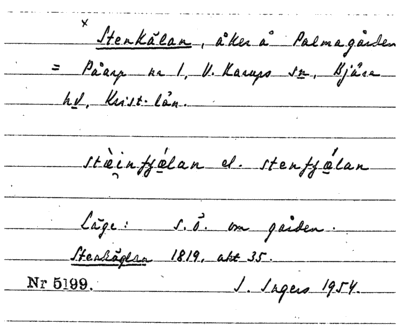 x
Stenkålan, åker å Palmagården
= Påarp nr 1, V. Karups sn, Bjäre
hd, Krist. län.
stèinfjǻlan el. stenfjǻlan
Läge: s.ö. om gården.
1819, akt 35.
Nr 5199. I. Ingers 1954.